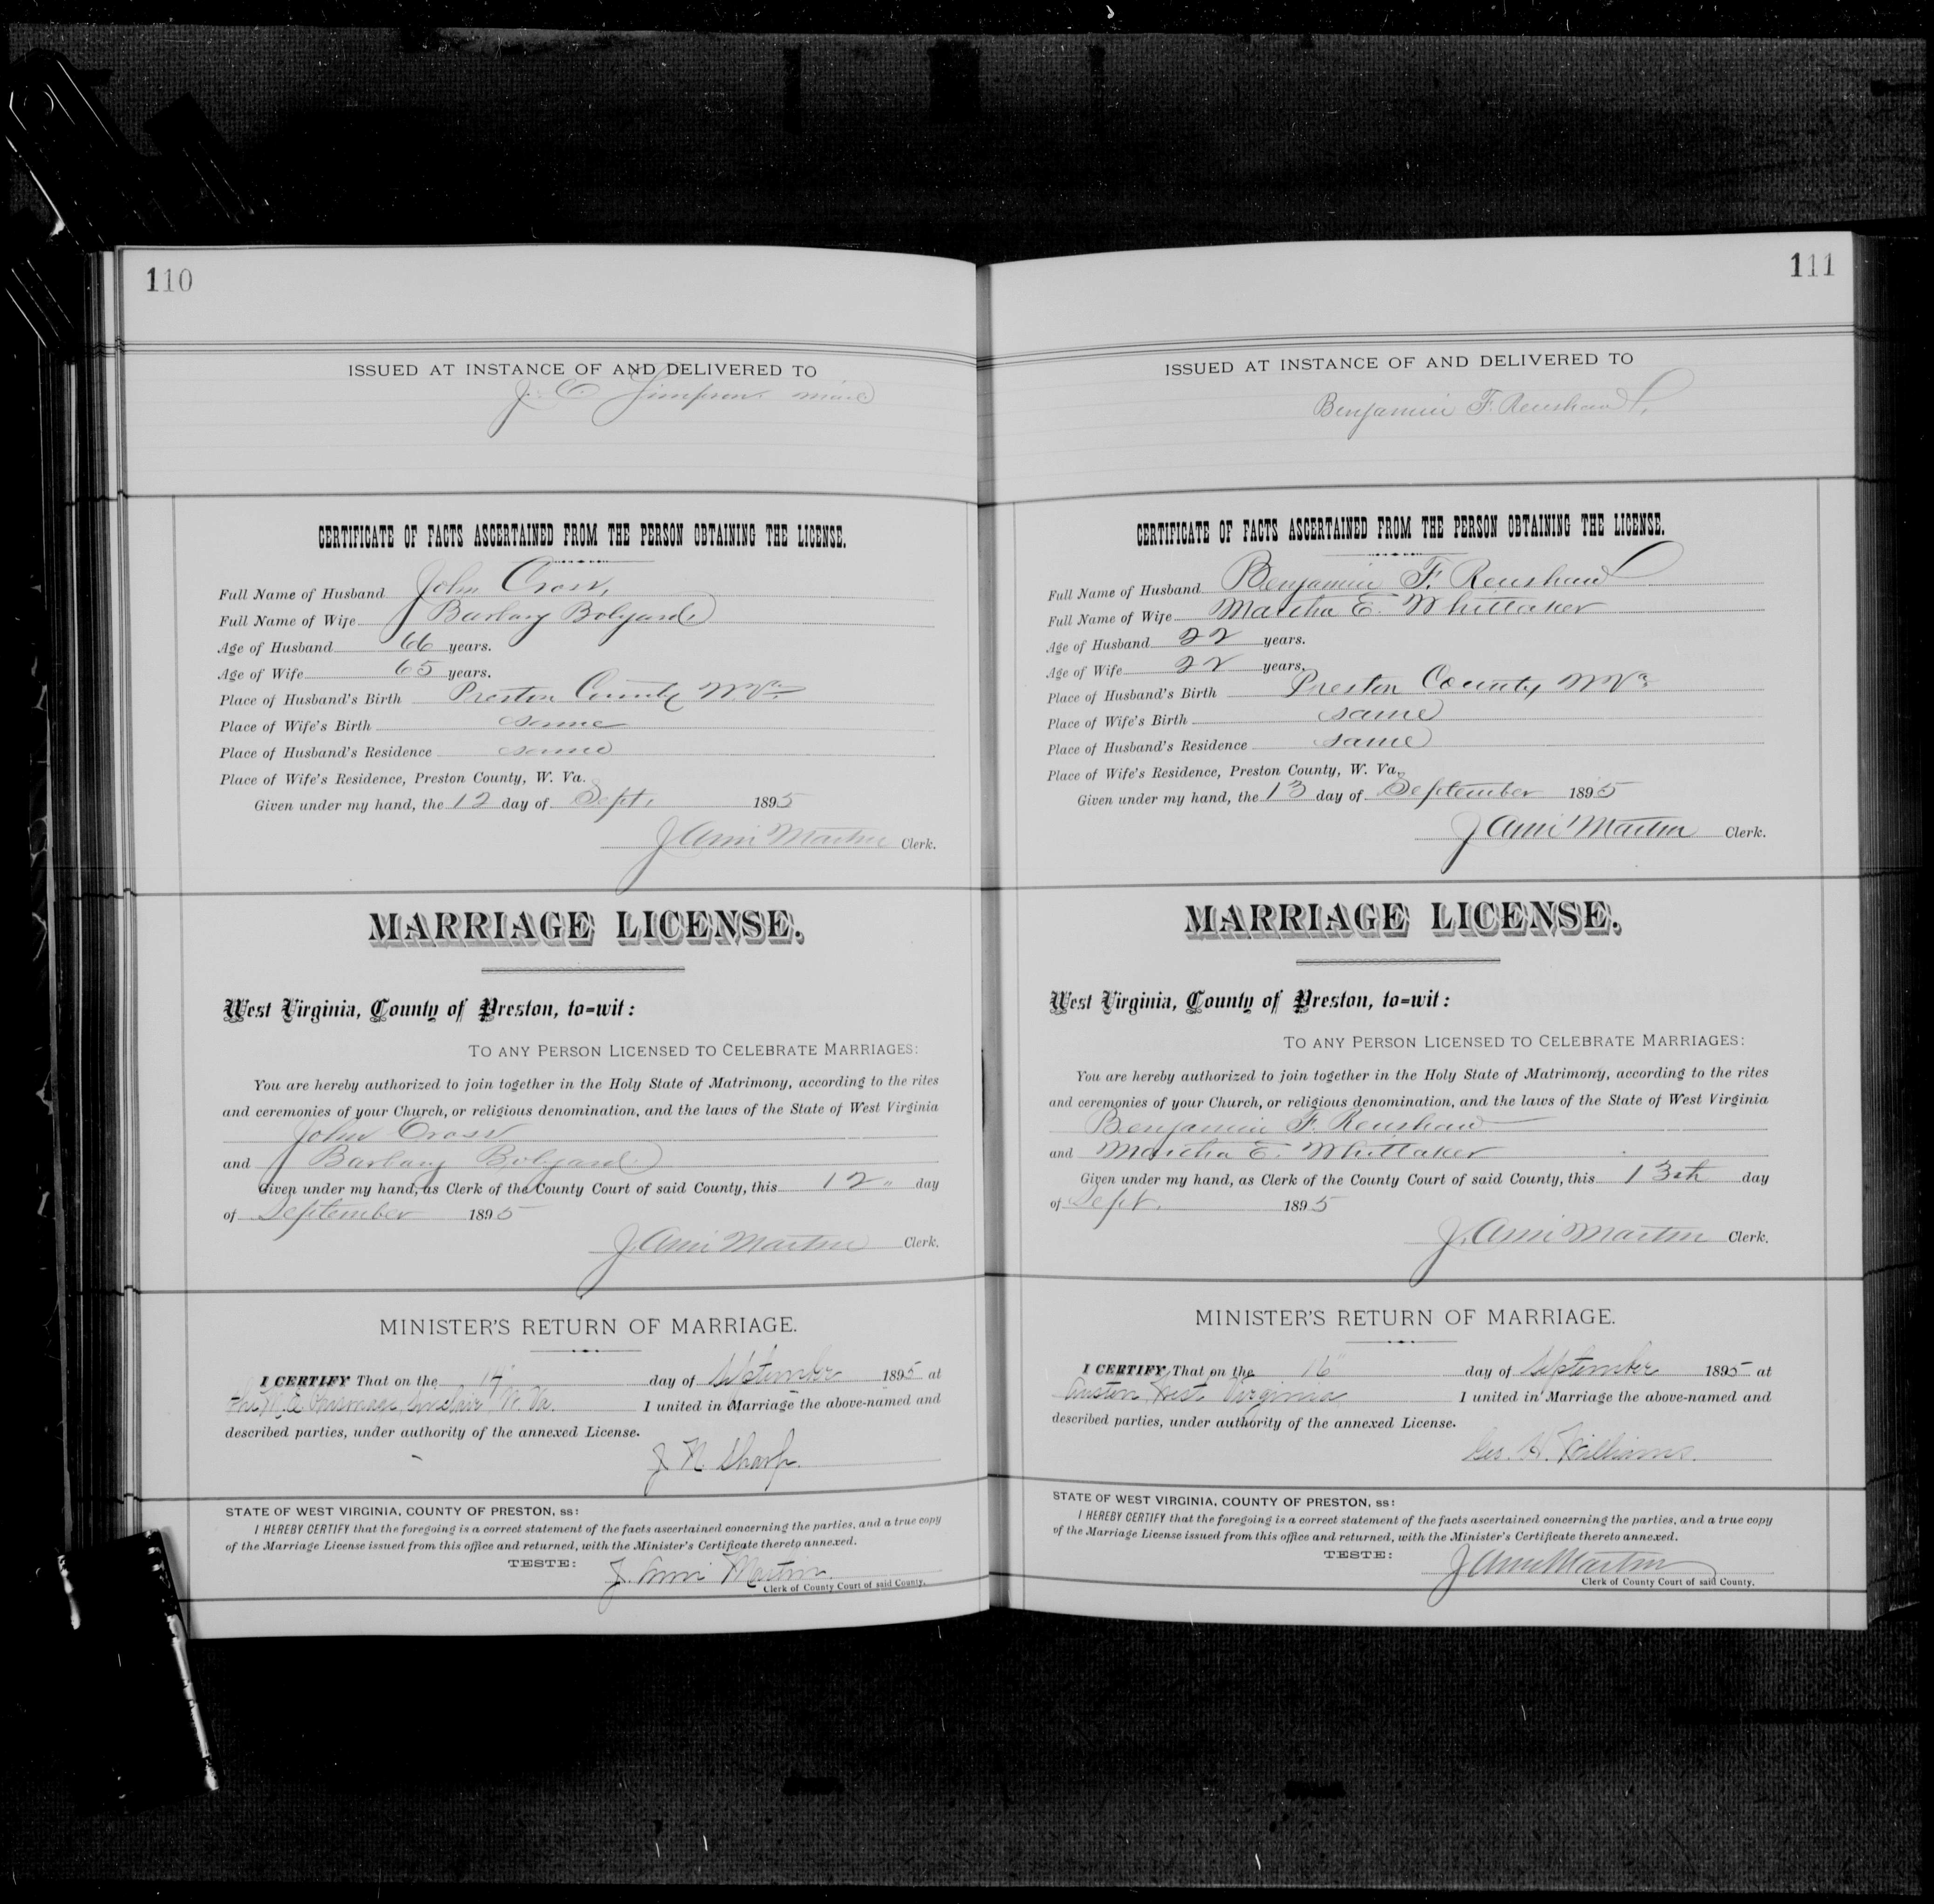 110
ISSUED AT INSTANCE OF AND DELIVERED TO
J. C. Simpson
CERTIFICATE OF FACTS ASCERTAINED FROM THE PERSON OBTAINING THE LICENSE.
Full Name of Husband John Cross,
Full Name of Wife Barbary Bolyard
Age of Husband 66 years.
Age of Wife 65 years.
Place of Husband's Birth Preston County W.Va.
Place of Wife's Birth same
Place of Husband's Residence same
Place of Wife's Residence, Preston County, W. Va.
Given under my hand, the 12 day of Sept. 1895
J Ami Martin Clerk.
MARRIAGE LICENSE.
West Virginia, County of Preston, to=wit:
TO ANY PERSON LICENSED TO CELEBRATE MARRIAGES:
You are hereby authorized to join together in the Holy State of Matrimony, according to the rites
and ceremonies of your Church, or religious denomination, and the laws of the State of West Virginia
John Cross
and Barbary Bolyard
Given under my hand, as Clerk of the County Court of said County, this 12" day
of September 1895
J. Ami Martin Clerk.
MINISTER'S RETURN OF MARRIAGE.
I CERTIFY That on the day of September 1895 at
the M. E. Parsonage, Sinclair W. Va. I united in Marriage the above-named and
described parties, under authority of the annexed License.
J. N. Sharp.
STATE OF WEST VIRGINIA, COUNTY OF PRESTON, ss:
I HEREBY CERTIFY that the foregoing is a correct statement of the facts ascertained concerning the parties, and a true copy
of the Marriage License issued from this office and returned, with the Minister's Certificate thereto annexed.
TESTE: J. Ami Martin
Clerk of County Court of said County.
111
ISSUED AT INSTANCE OF AND DELIVERED TO
Benjamin F. Renshaw
CERTIFICATE OF FACTS ASCERTAINED FROM THE PERSON OBTAINING THE LICENSE.
Full Name of Husband Benjamin F. Renshaw
Full Name of Wife Martha E. Whittaker
Age of Husband 22 years.
Age of Wife 22 years.
Place of Husband's Birth Preston County W.Va.
Place of Wife's Birth same
Place of Husband's Residence same
Place of Wife's Residence, Preston County, W. Va.
Given under my hand, the 13 day of September 1895
J Ami Martin Clerk.
MARRIAGE LICENSE.
West Virginia, County of Preston, to=wit:
TO ANY PERSON LICENSED TO CELEBRATE MARRIAGES:
You are hereby authorized to join together in the Holy State of Matrimony, according to the rites
and ceremonies of your Church, or religious denomination, and the laws of the State of West Virginia
Benjamin F. Renshaw
and Martha E. Whittaker
Given under my hand, as Clerk of the County Court of said County, this 13th day
of Sept. 1895
J. Ami Martin Clerk.
MINISTER'S RETURN OF MARRIAGE.
I CERTIFY That on the 16" day of September 1895 at
Austen West Virginia I united in Marriage the above-named and
described parties, under authority of the annexed License.
Geo. H. Williams.
STATE OF WEST VIRGINIA, COUNTY OF PRESTON, ss:
I HEREBY CERTIFY that the foregoing is a correct statement of the facts ascertained concerning the parties, and a true copy
of the Marriage License issued from this office and returned, with the Minister's Certificate thereto annexed.
TESTE: J Ami Martin
Clerk of County Court of said County.